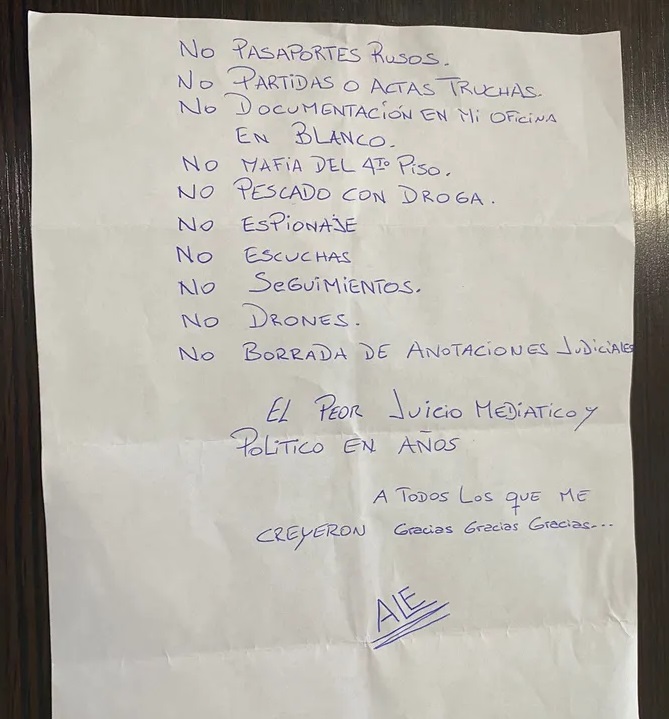 No PASAPORTES RUSOS.
No PARTIDAS O ACTAS TRUCHAS.
No DOCUMENTACIÓN EN MI OFICINA
EN BLANCO.
No MAFIA DEL 4TO PISO.
No PESCADO CON DROGA.
No ESPIONAJE
No ESCUCHAS
No SEGUIMIENTOS.
No DRONES.
No BORRADA DE ANOTACIONES JUDICIALES
EL PEOR JUICIO MEDIATICO Y
POLITICO EN AÑOS
A TODOS LOS QUE ME
CREYERON Gracias Gracias Gracias...
ALE